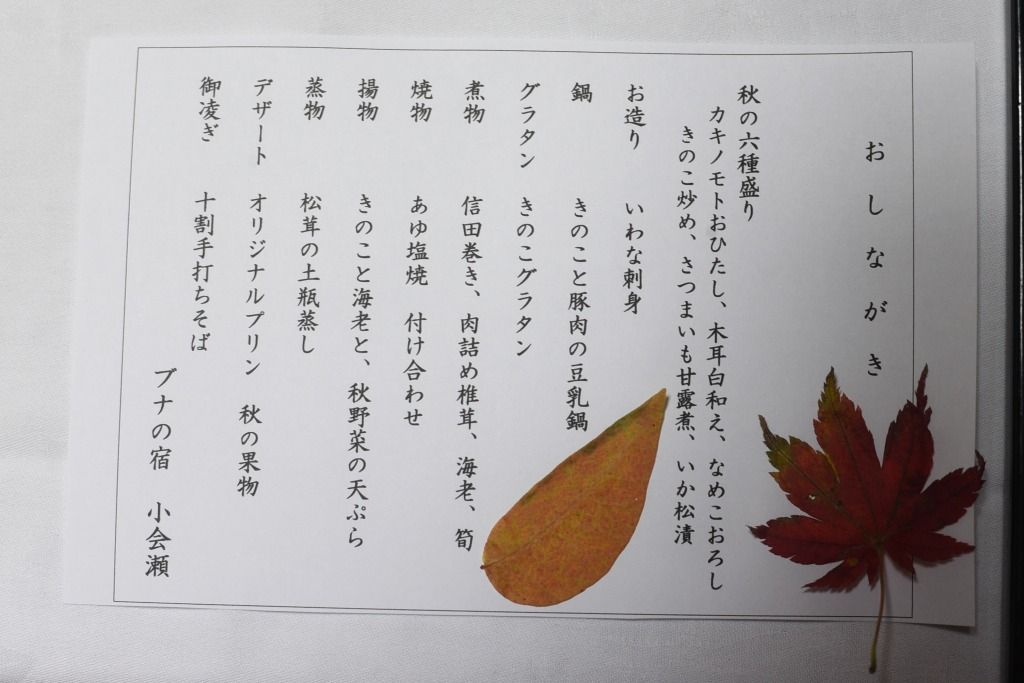 おしながき
秋の六種盛り
カキノモトおひたし、木耳白和え、なめこおろし
きのこ炒め、さつまいも甘露煮、いか松漬
お造り　いわな刺身
鍋　きのこと豚肉の豆乳鍋
グラタン　きのこグラタン
煮物　信田巻き、肉詰め椎茸、海老、筍
焼物　あゆ塩焼　付け合わせ
揚物　きのこと海老と、秋野菜の天ぷら
蒸物　松茸の土瓶蒸し
デザート　オリジナルプリン　秋の果物
御凌ぎ　十割手打ちそば
ブナの宿　小会瀬